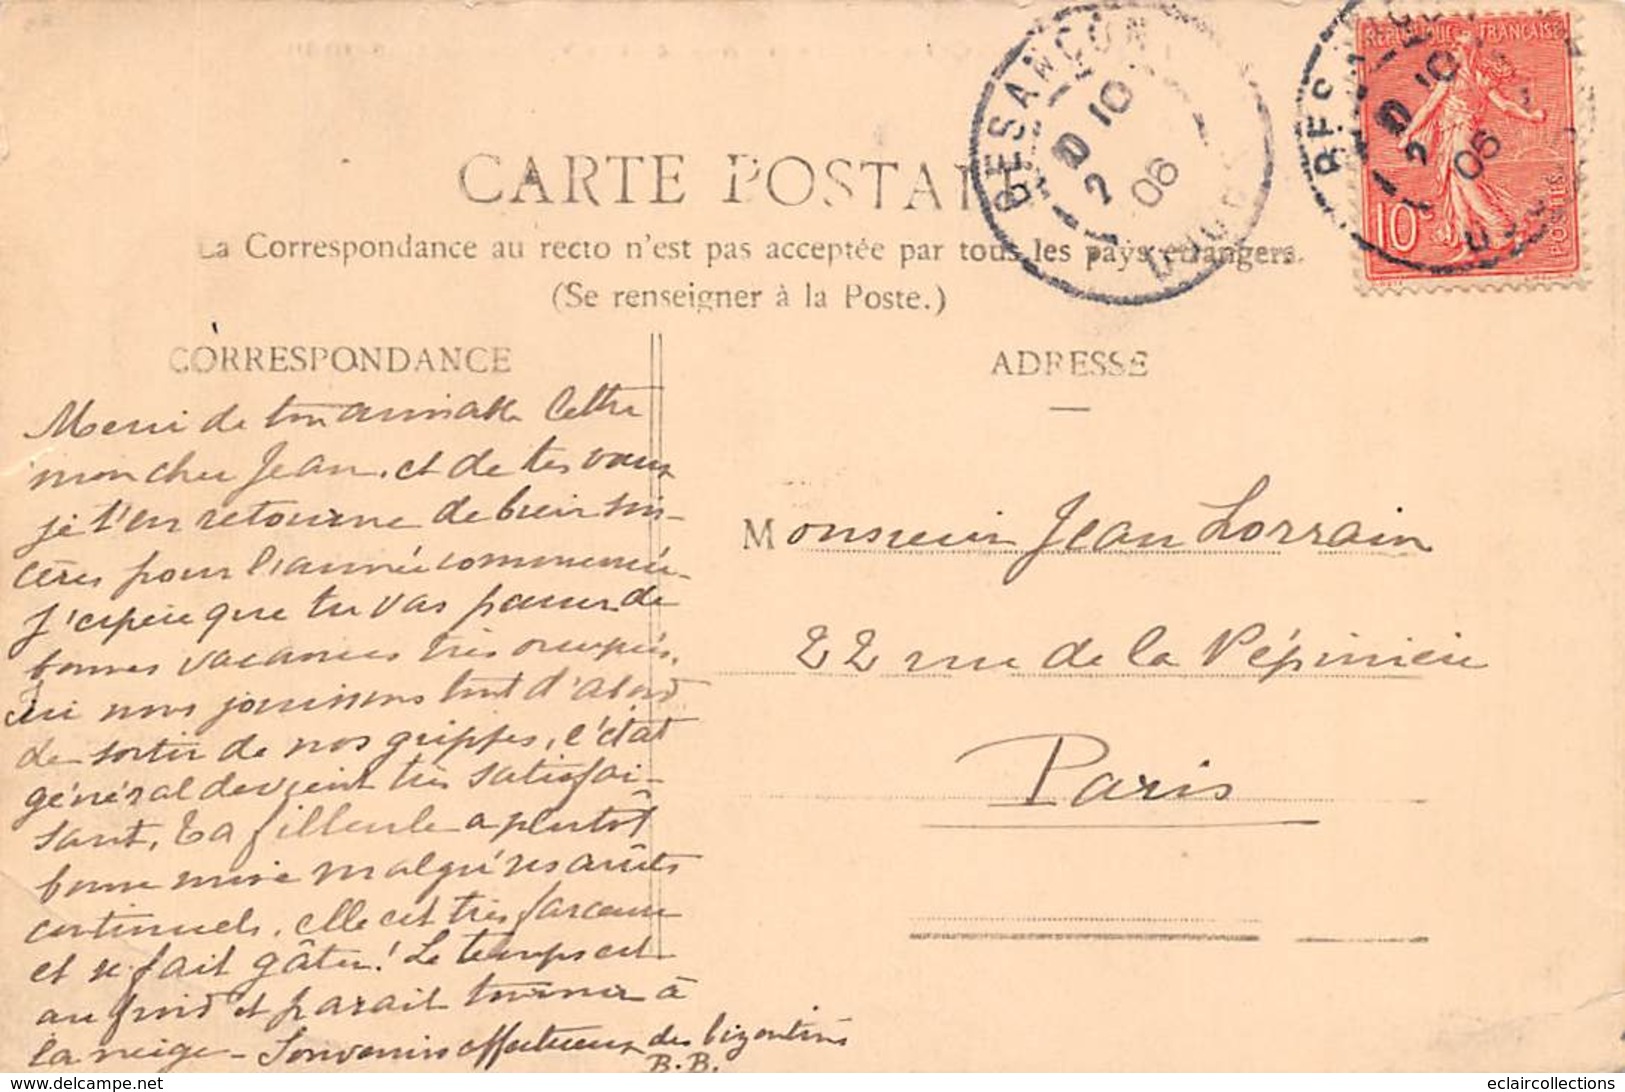 CARTE POSTALE
La Correspondance au recto n'est pas acceptée par tous les pays étrangers.
(Se renseigner à la Poste.)
CORRESPONDANCE
Merci de ton aimable lettre
mon cher Jean, et de tes vœux
je t'en retourne de bien sin-
cères pour l'année commencée.
J'espère que tu vas passer de
bonnes vacances très occupées.
Ici nous jouissons tout d'abord
de sortir de nos grippes, l'état
général devient très satisfai-
sant. Ta filleule a plutôt
bonne mine malgré ses arrêts
continuels, elle est très farceuse
et se fait gâter! Le temps est
au froid et paraît tourner à
la neige - Souvenirs affectueux des bizontins
B.B.
ADRESSE
Monsieur Jean Lorrain
22 rue de la Pépinière
Paris
BESANÇON
10
2
06
DOUBS
REPUBLIQUE FRANÇAISE
10c
POSTES
BESANÇON
10
2
06
DOUBS
eclaircollections